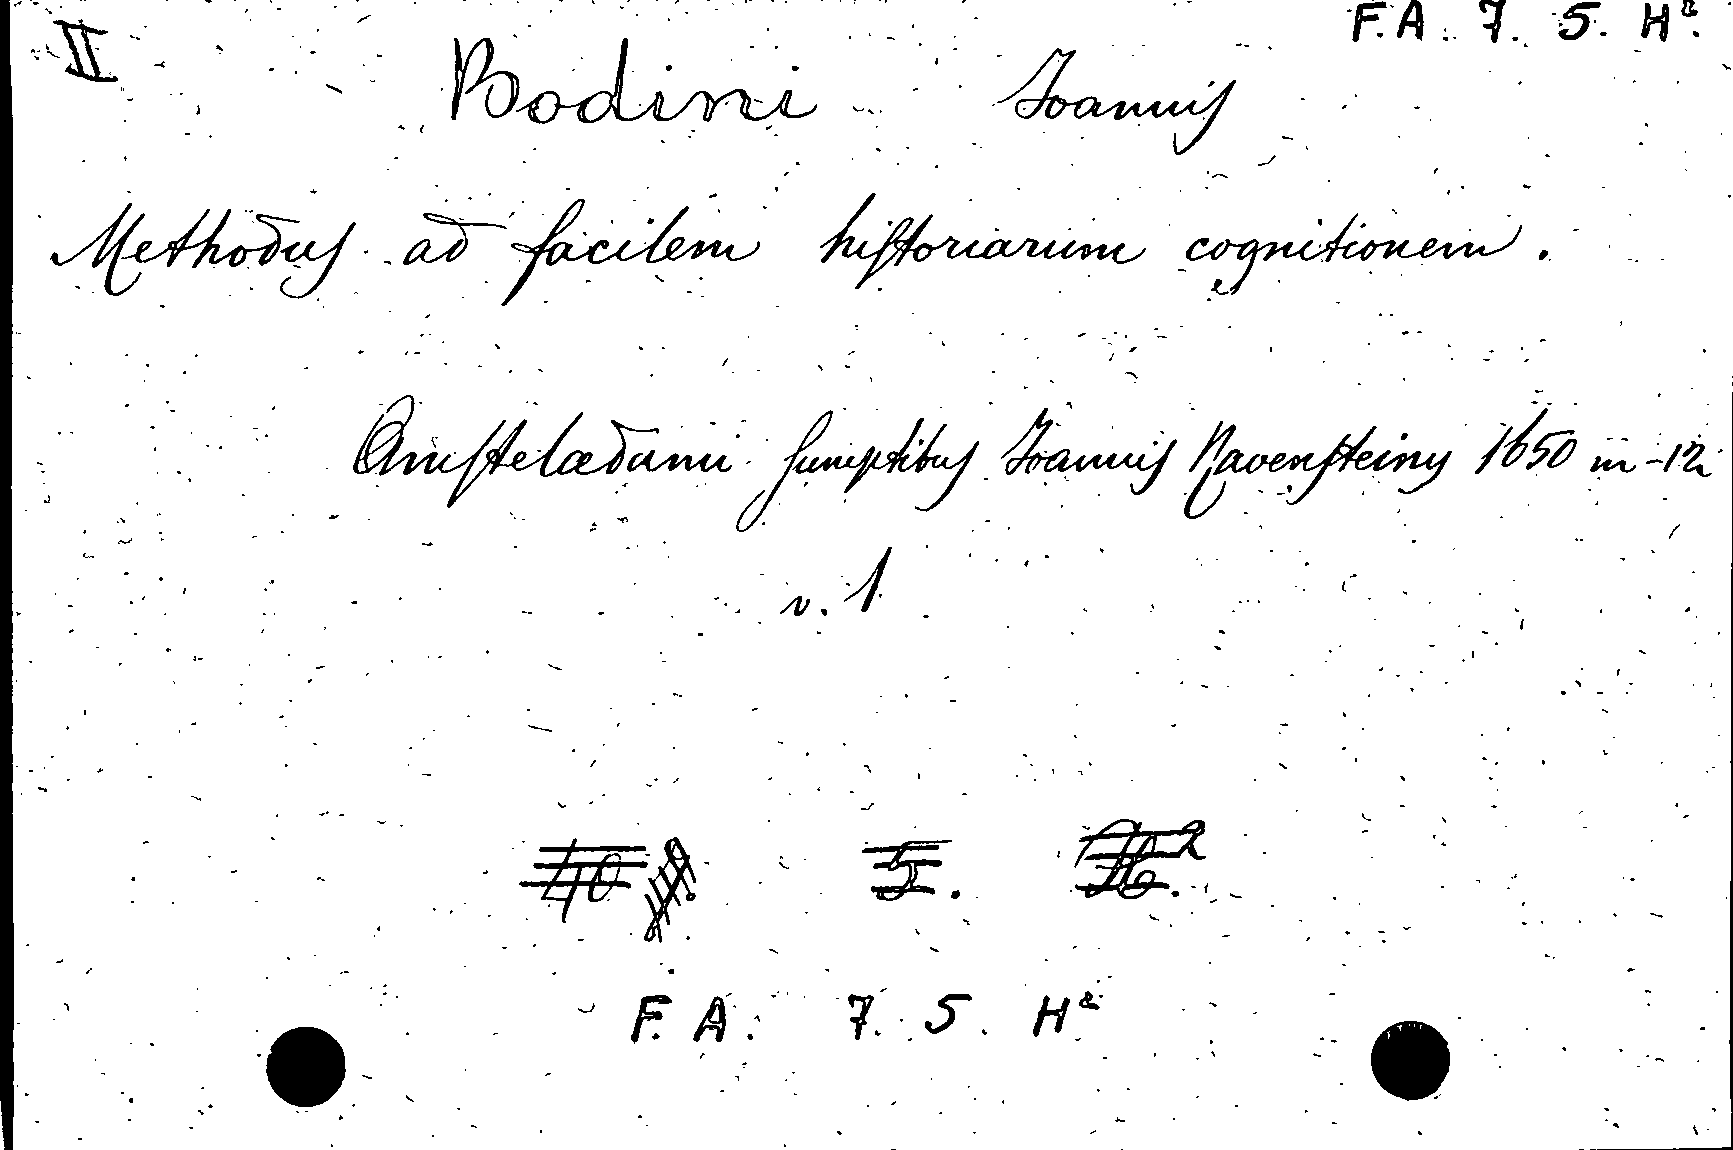 II
F. A. 7. 5. H².
Bodini Joannis
Methodus ad facilem historiarum cognitionem.
Amstelædami sumptibus Joannis Ravensteiny 1650 in-12
v. 1
5.
F. A. 7. 5. H²